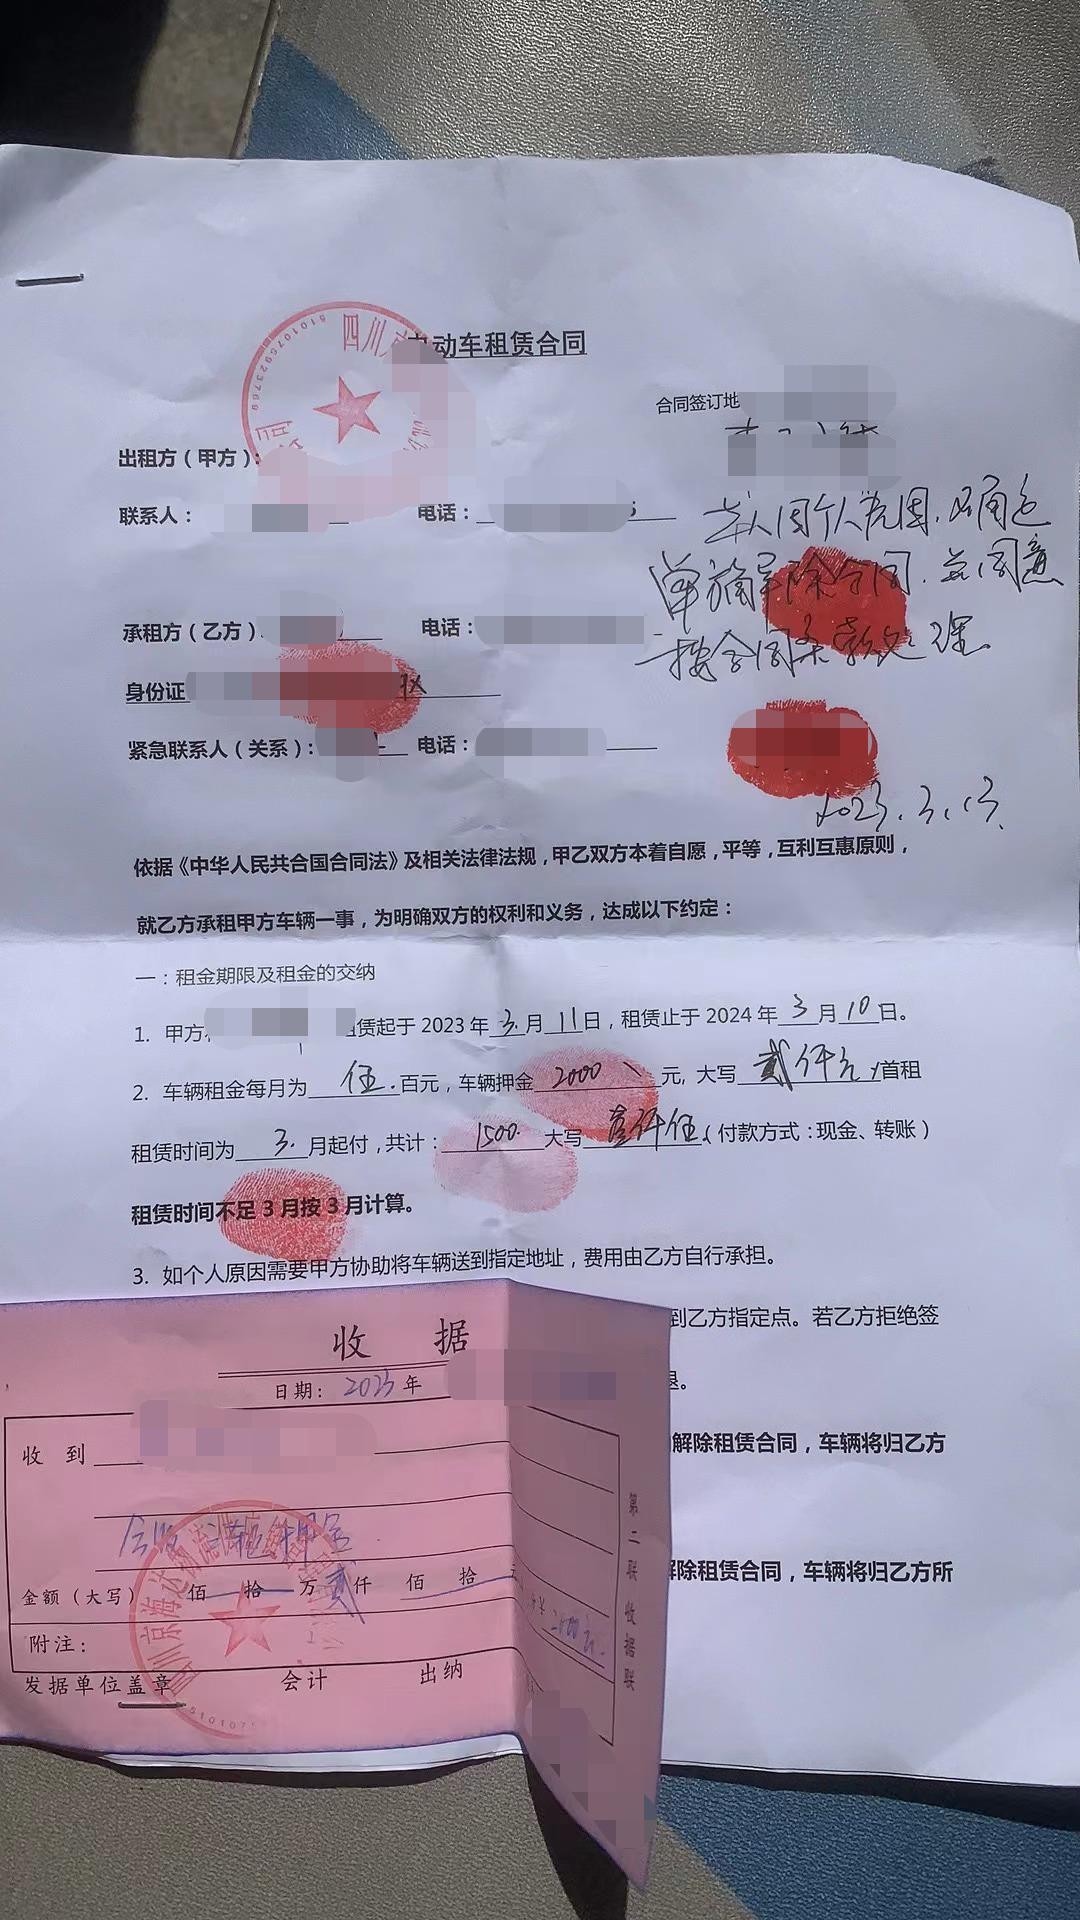 四川
5101075923769
电动车租赁合同
合同签订地
出租方（甲方）：
联系人：
电话：
本人因个人原因，明确已
单方解除合同，并同意
按合同条款处理
承租方（乙方）
电话：
身份证
紧急联系人（关系）：
电话：
2023.3.13
依据《中华人民共合国合同法》及相关法律法规，甲乙双方本着自愿，平等，互利互惠原则，
就乙方承租甲方车辆一事，为明确双方的权利和义务，达成以下约定：
一：租金期限及租金的交纳
1. 甲方 租赁起于 2023 年 3 月 11 日，租赁止于 2024 年 3 月 10 日。
2. 车辆租金每月为 伍 百元，车辆押金 2000 元，大写 贰仟元 /首租
租赁时间为 3 月起付，共计：1500 大写 壹仟伍（付款方式：现金、转账）
租赁时间不足 3 月按 3 月计算。
3. 如个人原因需要甲方协助将车辆送到指定地址，费用由乙方自行承担。
到乙方指定点。若乙方拒绝签
退。
解除租赁合同，车辆将归乙方
解除租赁合同，车辆将归乙方所
收 据
日期：2023 年
收 到
押金
金额（大写） 佰 拾 万 贰 仟 佰 拾 元
附注：
发据单位盖章 会计 出纳
第二联收据联
四川京海达物流
510107